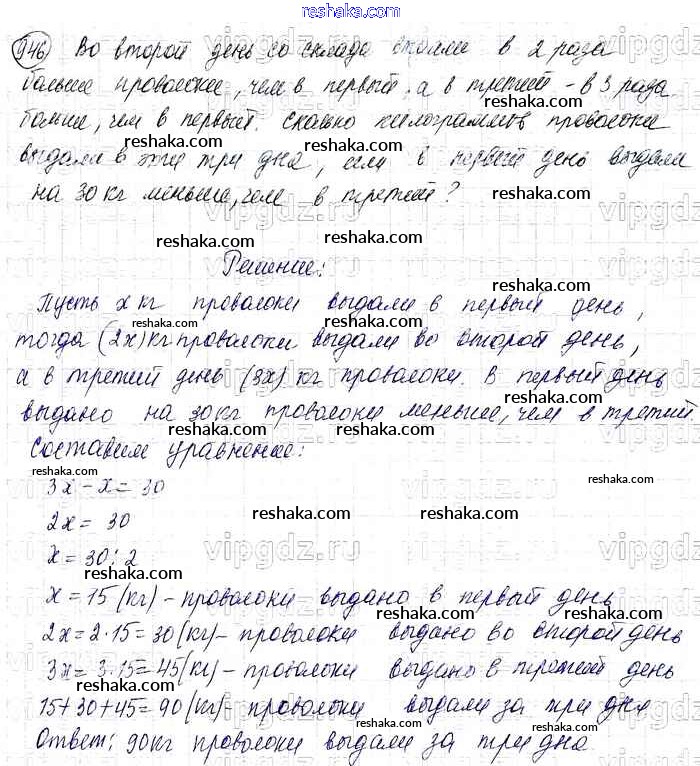 reshaka.com
946 Во второй день со склада выдали в 2 раза
больше проволоки, чем в первый, а в третий - в 3 раза
reshaka.com
больше, чем в первый. Сколько килограммов проволоки
reshaka.com
выдали в эти три дня, если в первый день выдали
на 30 кг меньше, чем в третий?
vipgdz.ru
reshaka.com reshaka.com
Решение:
Пусть x кг проволоки выдали в первый день,
reshaka.com reshaka.com
тогда (2x) кг проволоки выдали во второй день,
а в третий день (3x) кг проволоки. В первый день
reshaka.com reshaka.com
выдано на 30 кг проволоки меньше, чем в третий.
reshaka.com
Составим уравнение:
reshaka.com reshaka.com
3x - x = 30
2x = 30
reshaka.com reshaka.com
x = 30 : 2
vipgdz.ru
reshaka.com
x = 15 (кг) - проволоки выдано в первый день
reshaka.com
2x = 2·15 = 30 (кг) - проволоки выдано во второй день
reshaka.com
3x = 3·15 = 45 (кг) - проволоки выдано в третий день
reshaka.com reshaka.com
15 + 30 + 45 = 90 (кг) - проволоки выдали за три дня
reshaka.com
Ответ: 90 кг проволоки выдали за три дня.
reshaka.com